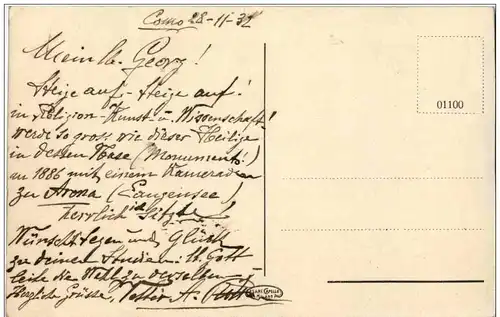 Como 28-11-32
Mein lb. Georg!
Steige auf - steige auf!
in Religion - Kunst - u. Wissenschaft!
werde so gross wie dieser Heilige
in dessen Nase (Monument!)
in 1886 mit einem Kameraden
zu Arona (Langensee)
herrlich
Wünsche Segen und Glück
zu deinen Studien: lb. Gott
leite die Wahl zu derselben
Herzliche Grüsse, Vetter A.
01100